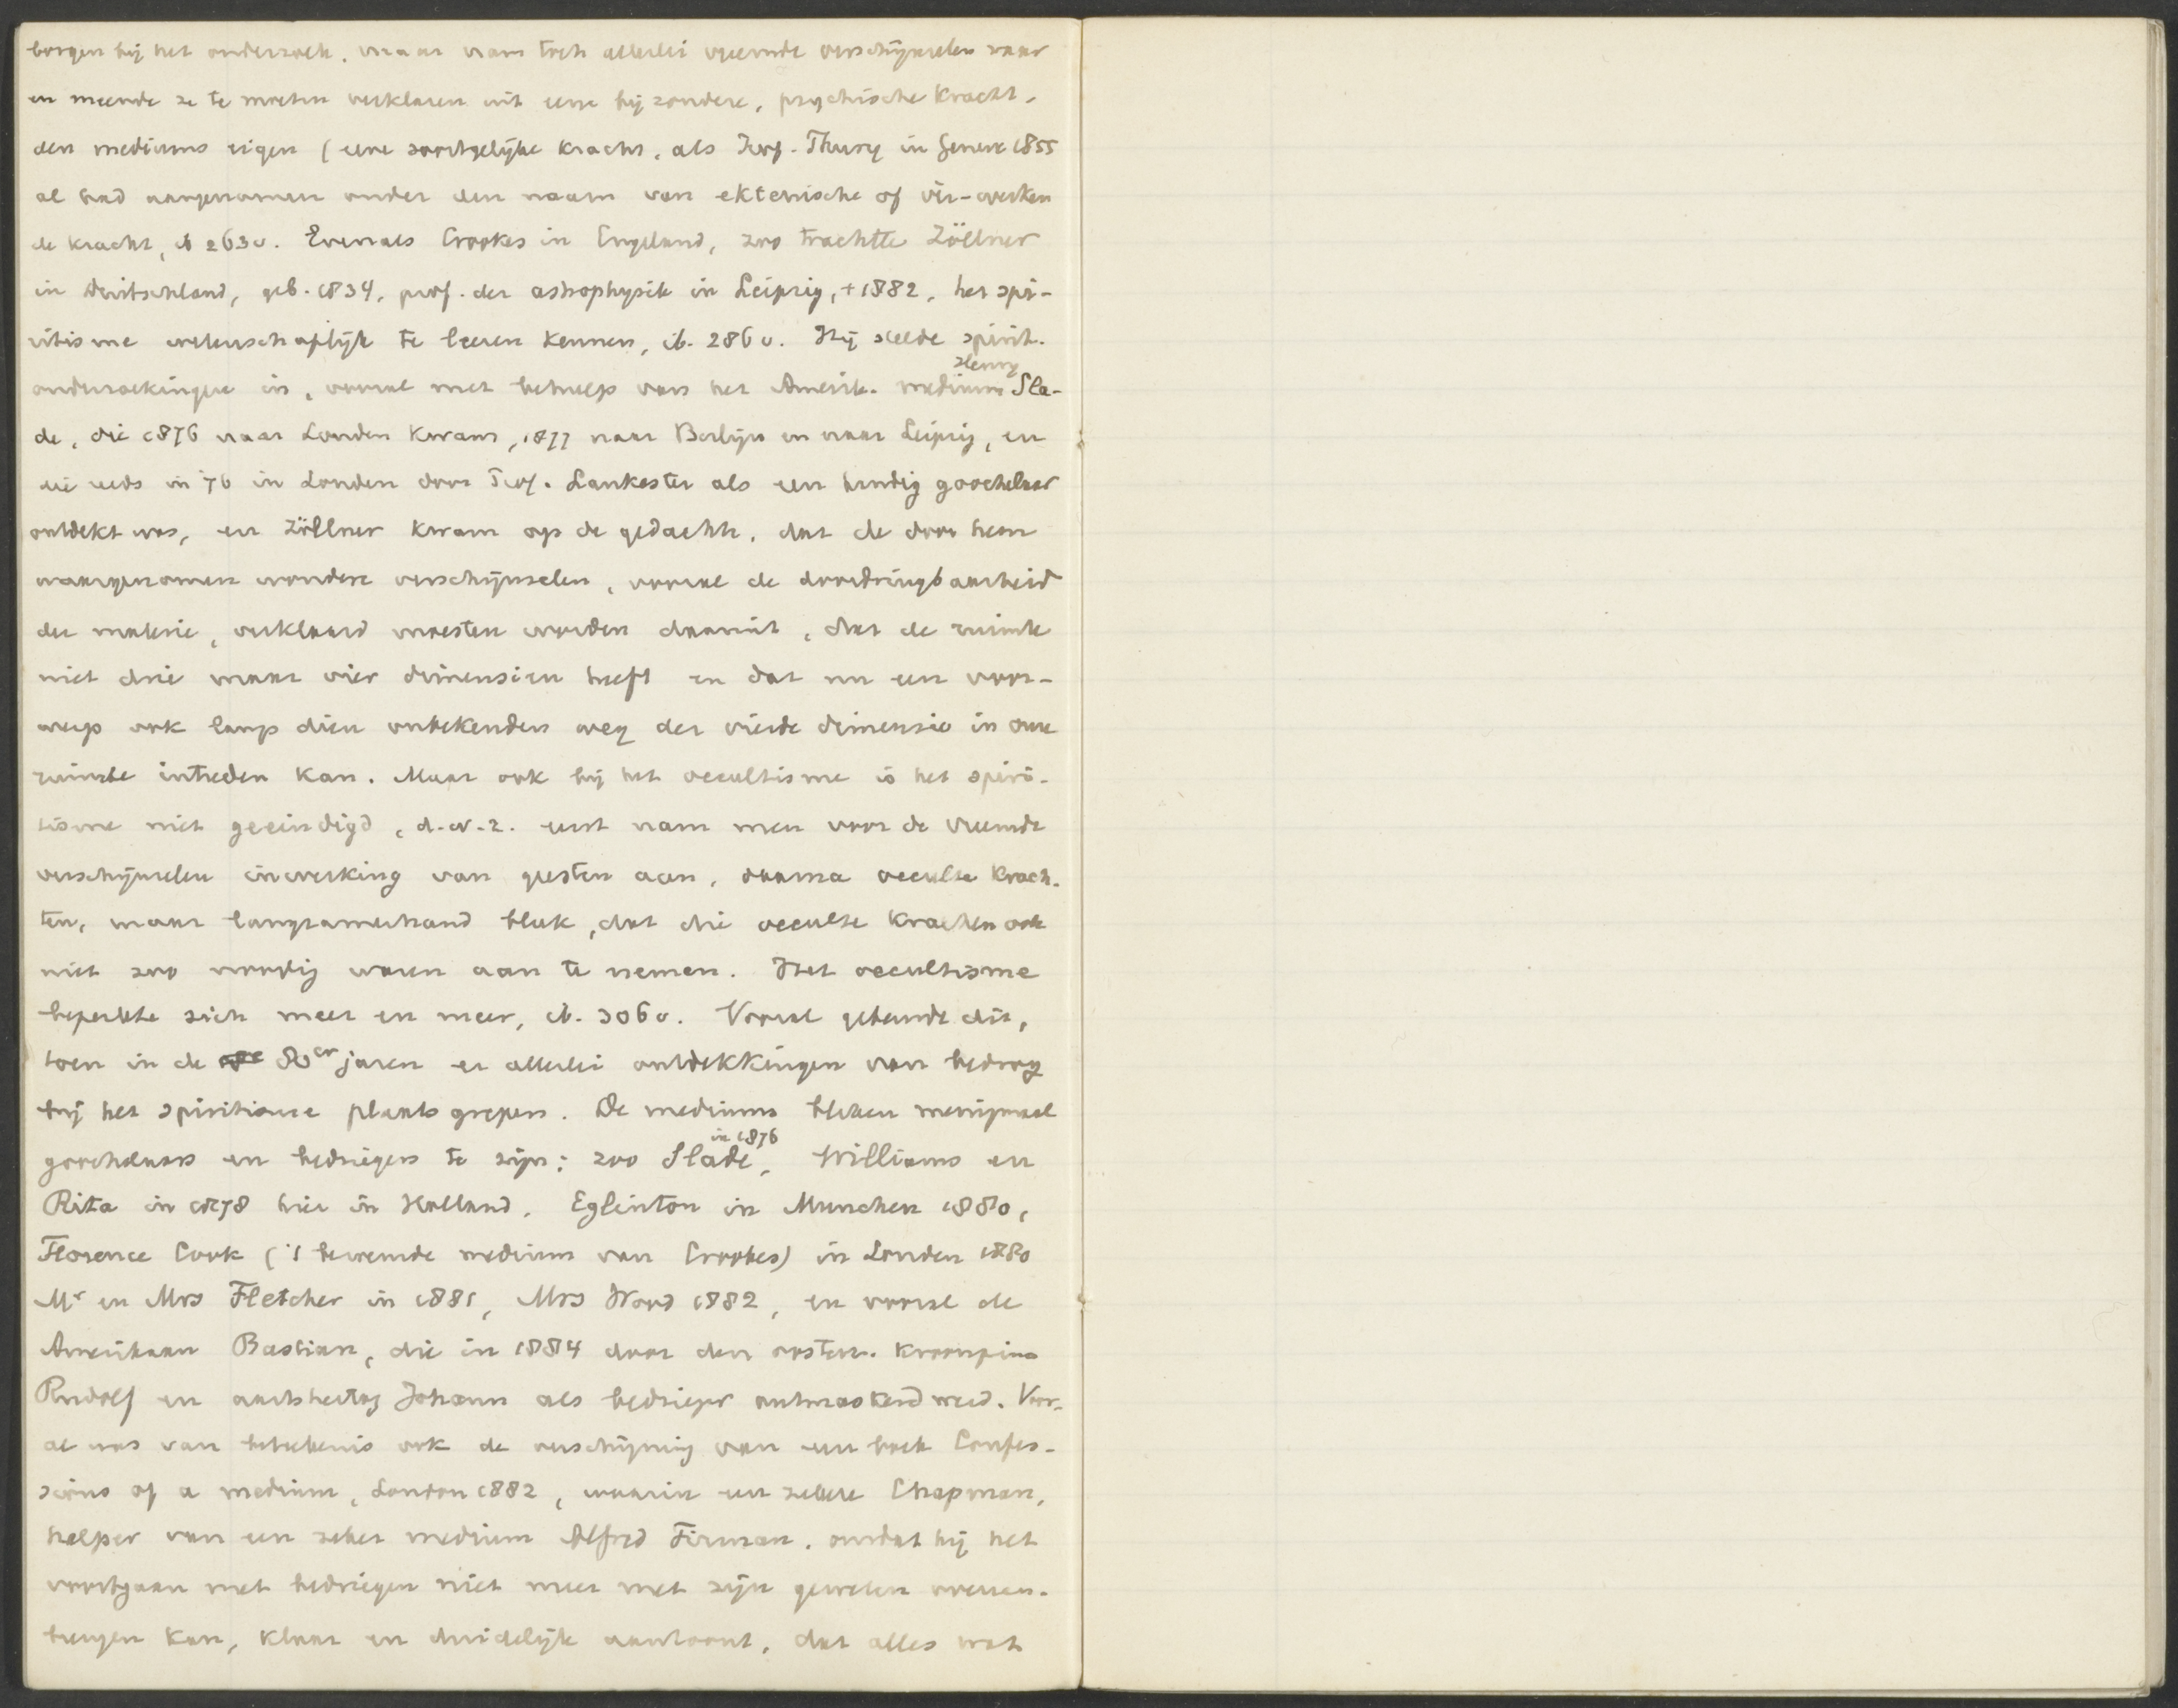 borgen bij het onderzoek, maar nam toch allerlei vreemde verschijnselen waar
en meende ze te moeten verklaren uit eene bijzondere, psychische kracht,
den mediums eigen (eene soortgelijke kracht, als Prof. Thury in Geneve 1855
al had aangenomen onder den naam van ektenische of ver-werken
de kracht, ib 263v. Evenals Crookes in Engeland, zoo trachtte Zöllner
in Duitschland, geb. 1834, prof. der astrophysik in Leipzig, +1882, het spi-
ritisme wetenschaplijk te leeren kennen, ib. 286v. Hij stelde spirit.
onderzoekingen in, vooral met behulp van het Amerik. medium Henry Sla-
de, die 1876 naar Londen kwam, 1877 naar Berlijn en naar Leipzig, en
die reeds in 76 in Londen door Prof. Lankester als een handig goochelaar
ontdekt was, en Zöllner kwam op de gedachte, dat de door hem
waargenomen wondere verschijnselen, vooral de doordringbaarheid
der materie, verklaard moesten worden daaruit, dat de ruimte
niet drie maar vier dimensien heeft en dat nu een voor-
werp ook langs dien onbekenden weg der vierde dimensie in onze
ruimte intreden kan. Maar ook bij het occultisme is het spiri-
tisme niet geeindigd, d.w.z. eerst nam men voor de vreemde
verschijnselen inwerking van geesten aan, daarna occulte krach-
ten, maar langzamerhand bleek, dat die occulte krachten ook
niet zoo noodig waren aan te nemen. Het occultisme
beperkte zich meer en meer, ib. 306v. Vooral gebeurde dit,
toen in de 80er jaren er allerlei ontdekkingen van bedrog
bij het spiritisme plaats grepen. De mediums bleken menigmaal
goochelaars en bedriegers te zijn: zoo Slade in 1876, Williams en
Rita in 1878 hier in Holland, Eglinton in Munchen 1880,
Florence Cook ('t beroemde medium van Crookes) in Londen 1880
Mr en Mrs Fletcher in 1881, Mrs Wood 1882, en vooral de
Amerikaan Bastian, die in 1884 door den oostenr. kroonprins
Rudolf en aartshertog Johann als bedrieger ontmaskerd werd. Voor-
al was van beteekenis ook de verschijning van een boek Confes-
sions of a medium, London 1882, waarin een zekere Chapman,
helper van een zeker medium Alfred Firman, omdat hij het
voortgaan met bedriegen niet meer met zijn geweten overeen-
brengen kan, klaar en duidelijk aantoont, dat alles wat